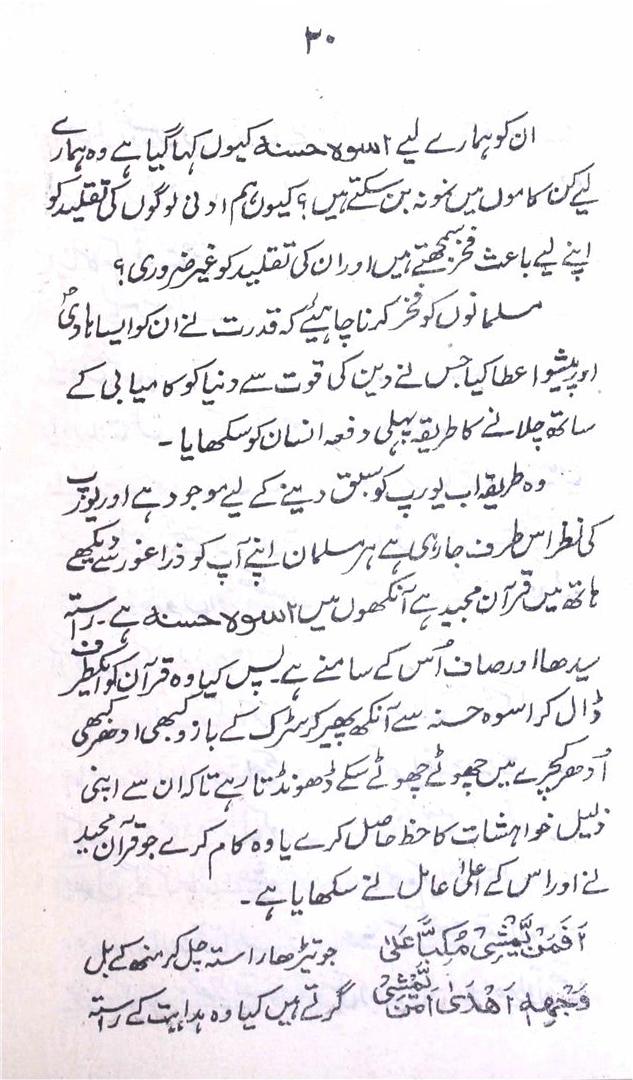 ۳۰
ان کو ہمارے لیے اسوہ حسنہ کیوں کہا گیا ہے وہ ہمارے
لیے کن کاموں میں نمونہ بن سکتے ہیں؟ کیوں ہم ادنیٰ لوگوں کی تقلید کو
اپنے لیے باعث فخر سمجھتے ہیں اور ان کی تقلید کو غیر ضروری؟
مسلمانوں کو فخر کرنا چاہیئے کہ قدرت نے ان کو ایسا ہادیؐ
اور پیشوا عطا کیا جس نے دین کی قوت سے دنیا کو کامیابی کے
ساتھ چلانے کا طریقہ پہلی دفعہ انسان کو سکھایا۔
وہ طریقہ اب یورپ کو سبق دینے کے لیے موجود ہے اور یورپ
کی نظر اس طرف جا رہی ہے ہر مسلمان اپنے آپ کو ذرا غور سے دیکھے
ہاتھ میں قرآن مجید ہے آنکھوں میں اسوہ حسنہ ہے۔ راستہ
سیدھا اور صاف اُس کے سامنے ہے۔ پس کیا وہ قرآن کو ایکطرف
ڈال کر اسوہ حسنہ سے آنکھ پھیر کر سڑک کے بازو کبھی ادھر کبھی
اُدھر کچرے میں چھوٹے چھوٹے سکے ڈھونڈتا رہے تاکہ ان سے اپنی
ذلیل خواہشات کا حظ حاصل کرے یا وہ کام کرے جو قرآن مجید
نے اور اس کے اعلیٰ عامل نے سکھایا ہے۔
اَفَمَنْ یَّمْشِیْ مُکِبًّا عَلٰی جو تیڑھا راستہ چل کر منھ کے بل
وَجْھِہٖ اَھْدٰی اَمَّنْ یَّمْشِیْ گرتے ہیں کیا وہ ہدایت کے راستہ